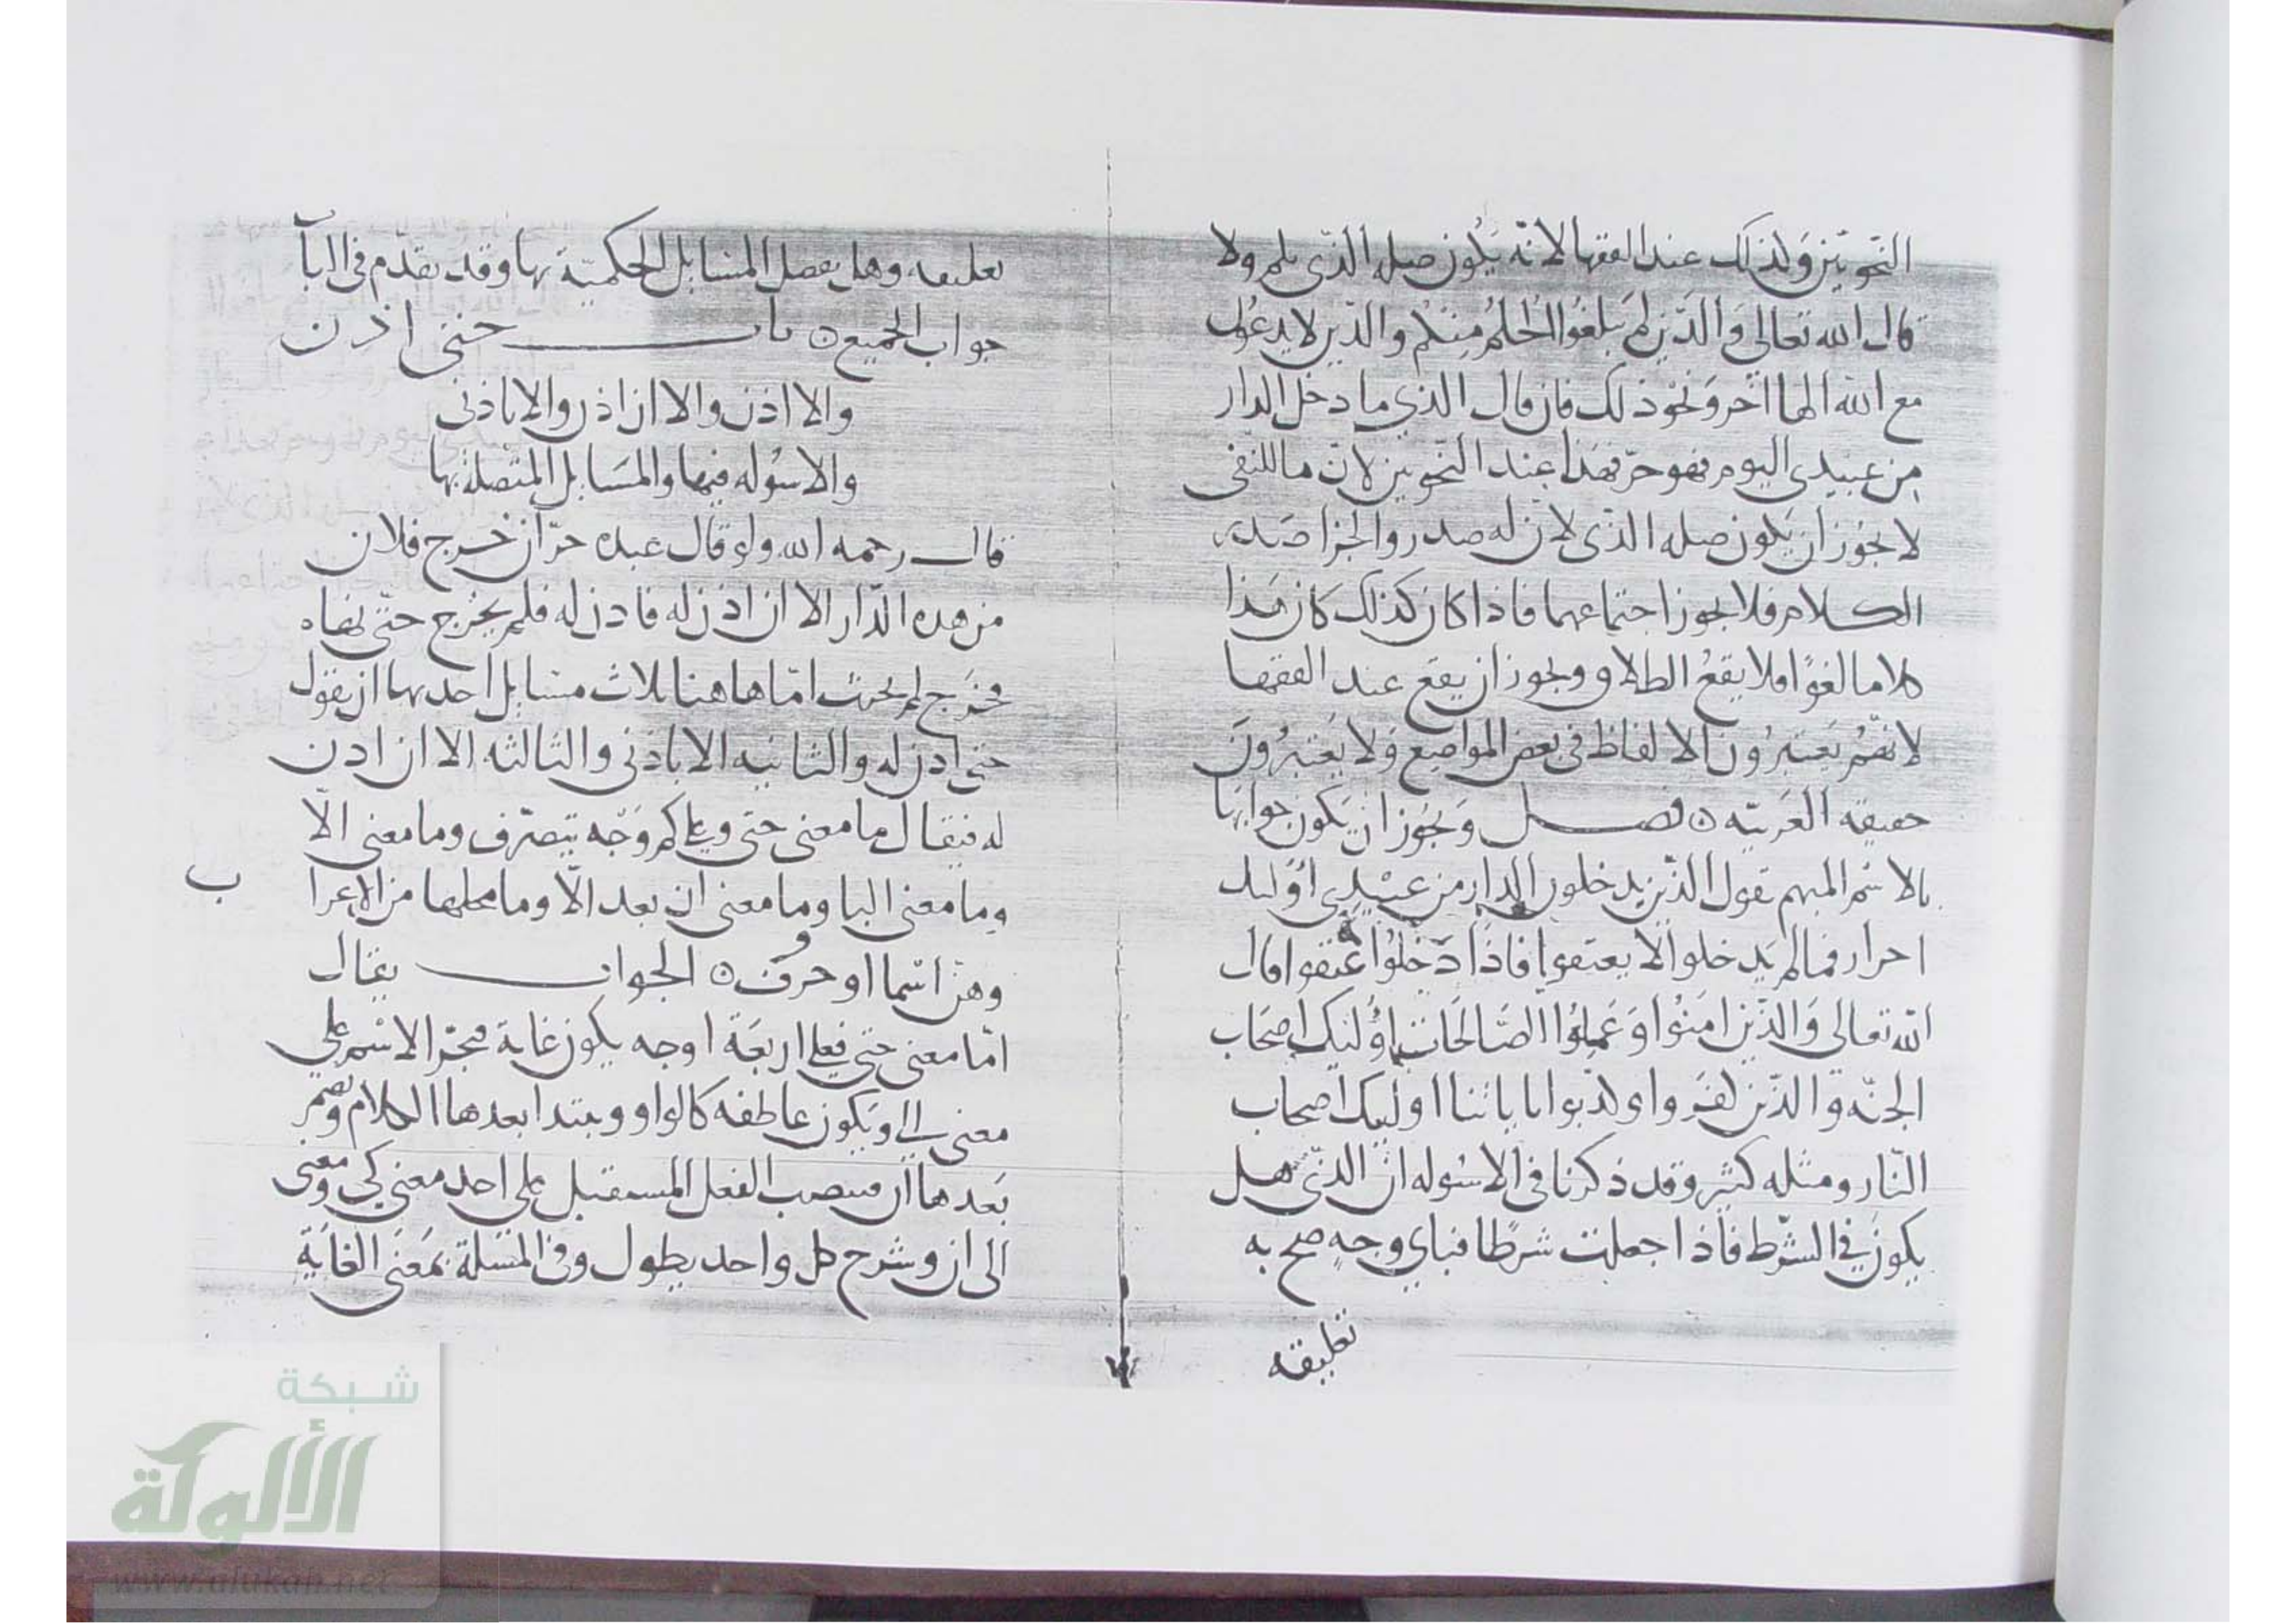 النحويين وكذلك عند الفقها لانه يكون صله الذي بلم ولا
قال الله تعالى وَالذين لم يبلغُوا الحُلُم مِنكم والذين لا يدعون
مع الله الها اخر وَنحو ذلك فان قال الذي ما دخل الدار
مِن عبيدي اليوم فهو حرّ فهذا عند النحويين لانّ ما للنفي
لا يجوز ان يكون صله الذي لانّ له صدر والجزا صدر
الكلام فلا يجوز اجتماعهما فاذا كان كذلك كان هَذا
كلاما لغوًا فلا يقعُ الطلاق ويجوز ان يقع عند الفقها
لانهم يَعتبرُون الالفاظ في بعض المواضيع وَلا يَعتبرُونَ
حقيقه العَربيّه ٥ فصل وَيجوز ان يَكون جوابها
بالاسْم المبهم تقول الذين يدخلون الدار من عبيْدِي اوْليك
احرار فما لم يَدخلوا لا يعتقوا فاذا دَخلُوا عتقوا قال
الله تعالى وَالذين امنوُا وَعَملوُا الصَالحَات اوُليك اصحَاب
الجنّه والذين كفروا وكذبوا باياتنا اوليك اصحاب
النّار ومثله كثير وقد ذكرنا في الاسْوله ان الذي هل
يكونُ في الشرط فاذا جعلت شرطا فباي وجهٍ صح به
تعليقه
تعليقه وهل يفصل المسايل الحكميّة بها وقد تقدّم في البا
جواب الجميع ٥ باب حتى اذن
والا اذن والا ان اذن والا باذني
والاسْوله فيها والمسَايل المتصله بها
قال رحمه الله ولو قال عبده حرّ ان خرج فلان
من هده الدّار الا ان اذن له فاذن له فلم يخرج حتى نهاه
فخرَج لم يحنث امّا هاهنا ثلاث مسايل احديها ان يقول
حتى اذن له والثانيه الا باذني والثالثه الا ان اذن
له فيقال ما معنى حتى وعلى كم وَجْه تتصرّف وما معنى الّا
وما معنى البا وما معنى ان بعد الّا وما محلها من الاعرا
ب
وهنّ اسْما او حروف ٥ الجواب يقال
امّا معنى حتى فعلى اربعَة اوجه يكون غاية فتجرّ الاسْم على
معنى الى وَيكون عاطفه كالواو ويبتدا بعدها الكلام وتضمر
بَعدها ان فينصب الفعل المستقبل على احد معنى كي ومعنى
الى ان وشرح كل واحد يطول وفي المسَلة بمَعنَى الغايَة
شبكة
الألوكة
www.alukah.net